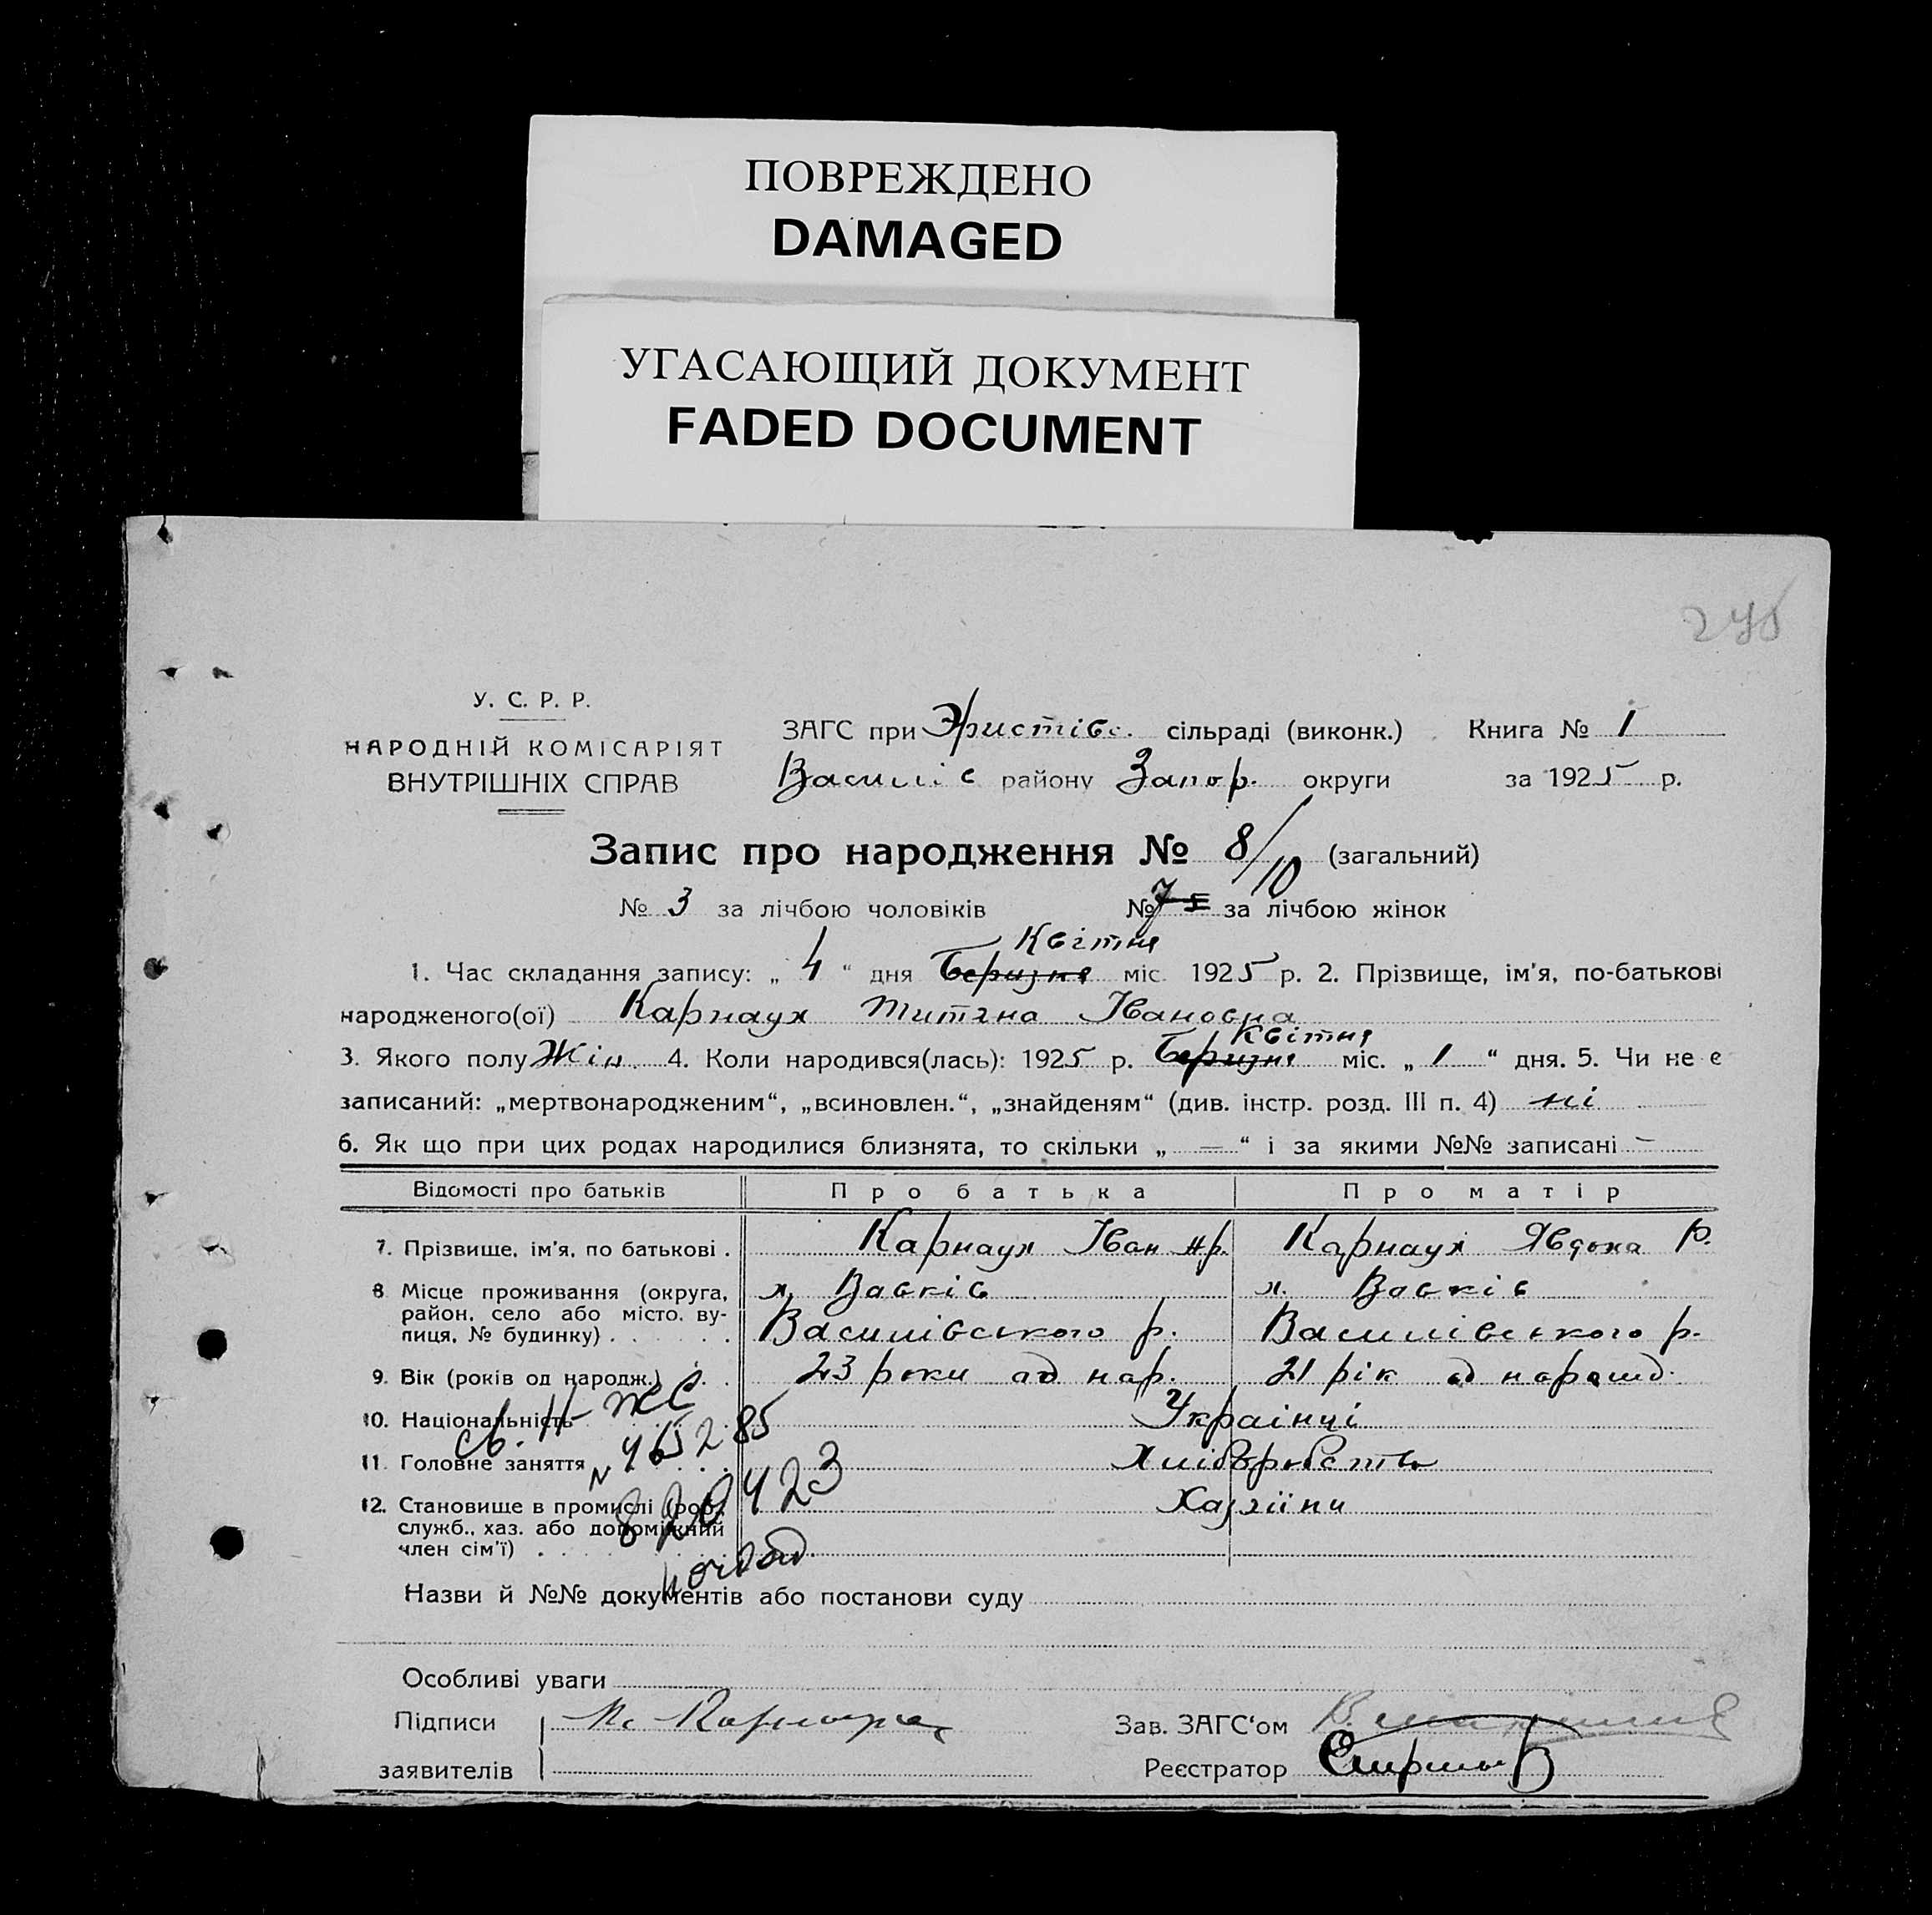 ПОВРЕЖДЕНО
DAMAGED
УГАСАЮЩИЙ ДОКУМЕНТ
FADED DOCUMENT
245
У. С. Р. Р.
НАРОДНІЙ КОМІСАРІЯТ
ВНУТРІШНІХ СПРАВ
ЗАГС при Эристівс. сільраді (виконк.) Книга № 1
Василів район­у Запор. округи за 1925 р.
Запис про народження № 8/10 (загальний)
№ 3 за лічбою чоловіків № 7 5 за лічбою жінок
Квітня
1. Час складання запису: „ 4 “ дня Беризня міс. 1925 р. 2. Прізвище, ім'я, по-батькові
народженого(ої) Карнаух Титяна Івановна
Квітня
3. Якого полу Жін. 4. Коли народився(лась): 1925 р. Беризня міс. „ 1 “ дня. 5. Чи не є
записаний: „мертвонародженим“, „всиновлен.“, „знайденям“ (див. інстр. розд. III п. 4) ні
6. Як що при цих родах народилися близнята, то скільки „ — “ і за якими №№ записані —
Відомості про батьків Про батька Про матір
7. Прізвище, ім'я, по батькові . Карнаух Іван Карнаух Явдоха Р.
8 Місце проживання (округа, х. Вовків х. Вовків
район, село або місто, ву-
лиця, № будинку) . . . . . . Василівського р. Василівського р.
9. Вік (років од народж.) . . 23 роки од нар. 21 рік од норошд.
10. Національність Украінці
св. Н ЖС
11. Головне заняття Хліборобство
N 465285
12. Становище в промислі (роб., Хазяіни
служб., хаз. або допоміжний
член сім'ї) . . . .
820423
Назви й №№ документів або постанови суду
Особливі уваги
Підписи Карнаух Зав. ЗАГС'ом
заявителів Реєстратор